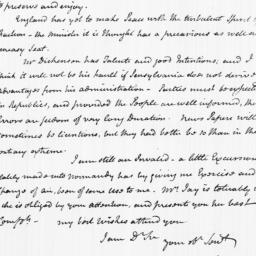 to preserve and enjoy.
England has yet to make Peace with the turbulent Spirit of
Faction – the minister it is thought has a precarious as well as
uneasy Seat.
Mr Dickenson has Talents and good Intentions, and I
think it will not be his fault if Pensylvania does not derive
advantages from his administration – Parties must be expected
in Republics, and provided the People are well informed, their
Errors are seldom of very long Duration. News Papers will
sometimes be licentious, but they had better be so than in the
contrary extreme.
I am still an Invalid – a little Excursion
lately made into Normandy has by giving me Exercise and
Change of air, been of some use to me. Mrs Jay is tolerably well
she is obliged by your attention, and presents you her best
Compts – my best wishes attend you
I am Dr Sir your obt Servt